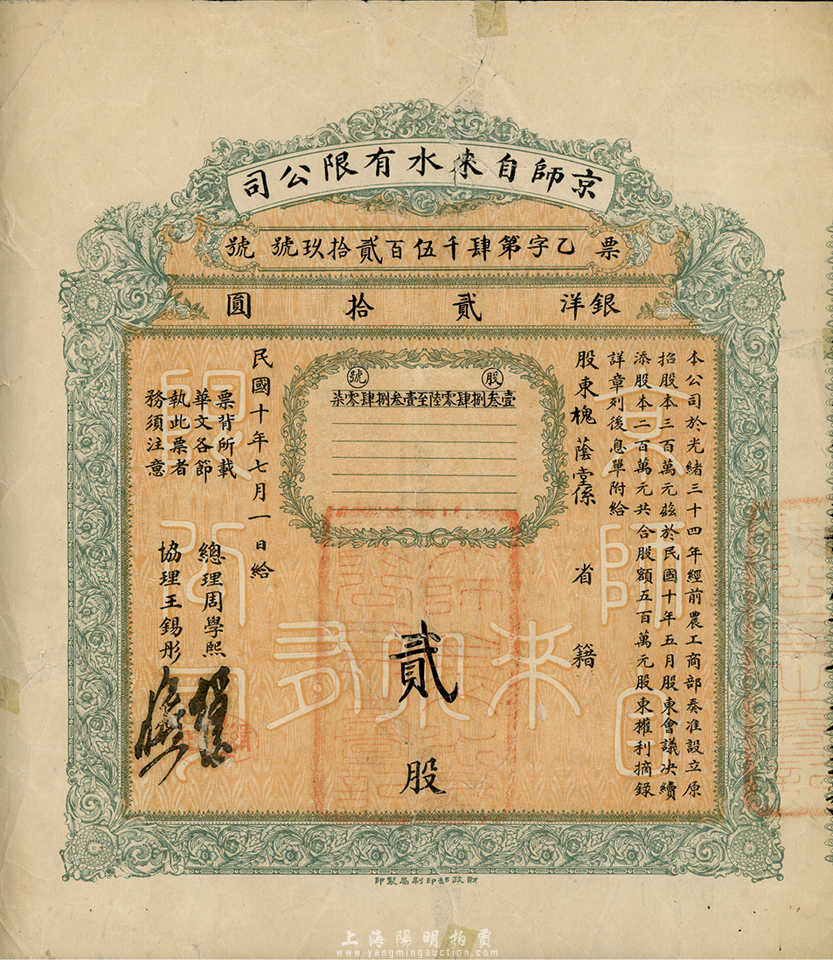 京師自來水有限公司
票乙字第肆千伍百貳拾玖號 號
銀洋貳拾圓
本公司於光緒三十四年經前農工商部奏准設立原
招股本三百萬元茲於民國十年五月股東會議決續
添股本二百萬元共合股額五百萬元股東權利摘錄
詳章列後息單附給
股東槐蔭堂係 省 籍
股號
壹叁捌肆零陸至壹叁捌肆零柒
貳股
民國十年七月一日給
票背所載
華文各節
執此票者
務須注意
總理周學熙
協理王錫彤
財政部印刷局製印
上海陽明拍賣
www.yangmingauction.com